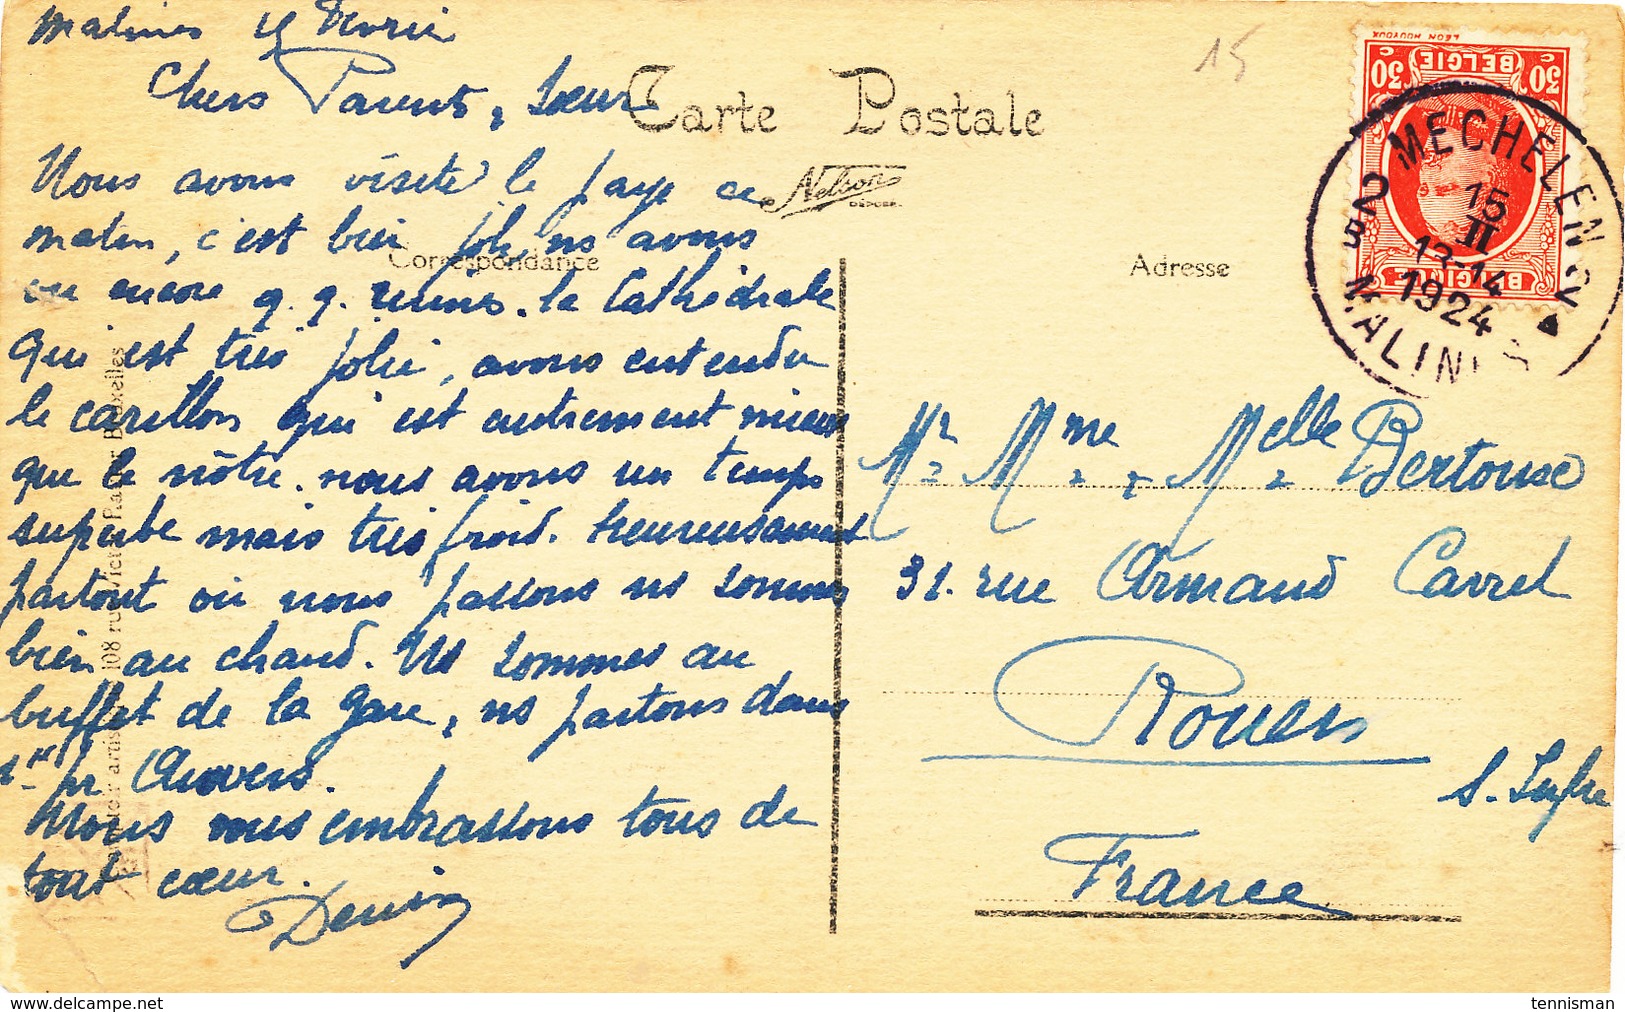 Malines Février
Chers Parents, Sœur
Carte Postale
15
Nous avons visité le pays ce
Nelson
DÉPOSÉ
matin, c'est bien joli, ns avons
Correspondance
Adresse
vu encore q. q. ruines. la Cathédrale
qui est très jolie, avons entendu
le carillon qui est autrement mieux
que le nôtre. nous avons un temps
superbe mais très froid. heureusement
partout où nous passons ns sommes
bien au chaud. Ns sommes au
buffet de la gare, ns partons dans
1 H pr Anvers.
Nous vous embrassons tous de
tout cœur.
Denis
LEON HOUYOUX
30 c BELGIE 30 c
BELGIQUE
MECHELEN
2 B
15
II
13-14
1924
MALINES
Mr. Mme. & Melle. Bertouse
31. rue Armand Carrel
Rouen
S. Infre
France
108 ru Bruxelles
tennisman